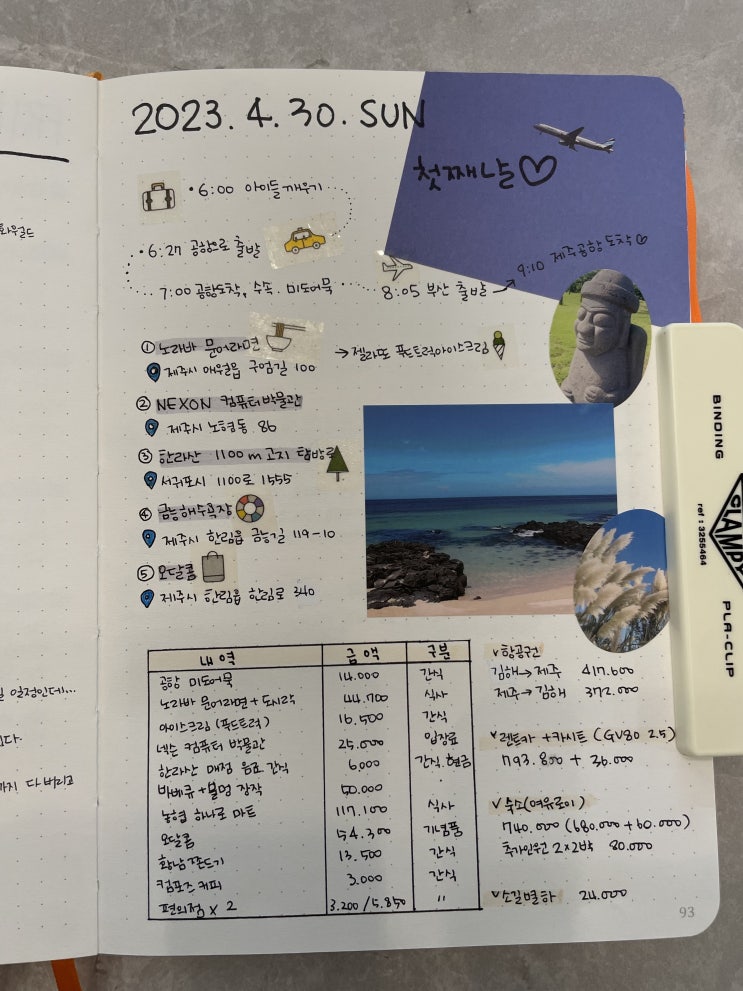 2023. 4. 30. SUN
첫째날♡
• 6:00 아이들깨우기
• 6:27 공항으로 출발
7:00 공항도착, 수속. 미도어묵
8:05 부산 출발 →
9:10 제주공항 도착♡
① 노라바 문어라면
→ 젤라또 푸드트럭아이스크림
제주시 애월읍 구엄길 100
② NEXON 컴퓨터박물관
제주시 노형동 86
③ 한라산 1100m고지 탐방로
서귀포시 1100로 1555
④ 금능해수욕장
제주시 한림읍 금능길 119-10
⑤ 오달콤
제주시 한림읍 한림로 340
내역 금액 구분
공항 미도어묵 14.000 간식
노라바 문어라면+도시락 44.700 식사
아이스크림 (푸드트럭) 16.500 간식
넥슨 컴퓨터 박물관 25.000 입장료
한라산 매점 음료 간식 6.000 간식.현금
바베큐+불멍 장작 50.000
농협 하나로 마트 117.100 식사
오달콤 54.300 기념품
황남쫀드기 13.500 간식
컴포즈 커피 3.000 간식
편의점 x 2 3.200 / 5.850 〃
∨항공권
김해→제주 417.600
제주→김해 372.000
∨렌토카 +카시트 (GV80 2.5)
793.800 + 36.000
∨숙소(여유로이)
740.000 (680.000+60.000)
추가인원 2x2박 80.000
∨소길별하 24.000
93
화월드
일정인데...
다.
까지 다 버리고
BINDING
CLAMPY
ref : 3255464
PLA-CLIP